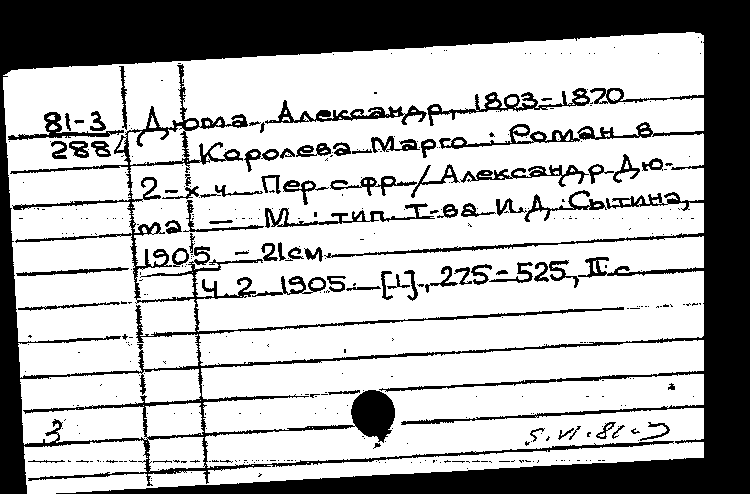 81-3 Дюма, Александр, 1803-1870
2884 Королева Марго: Роман в
2-х ч. Пер. с фр. / Александр Дю-
ма. — М.: тип. Т-ва И.Д. Сытина,
1905. - 21см.
Ч. 2. 1905. [1], 275-525, II с.
3
5.VI.81